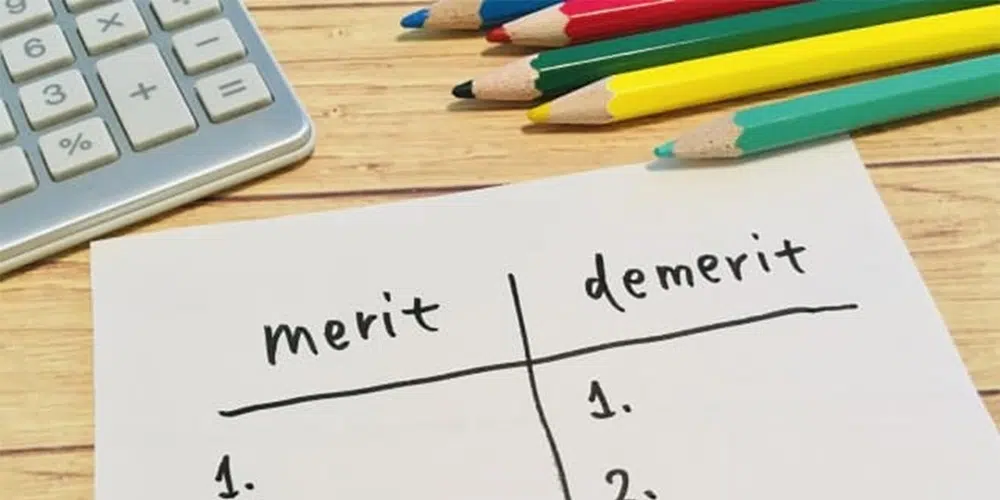 9
6 × ÷
3 + −
% =
merit demerit
1.
1.
2.